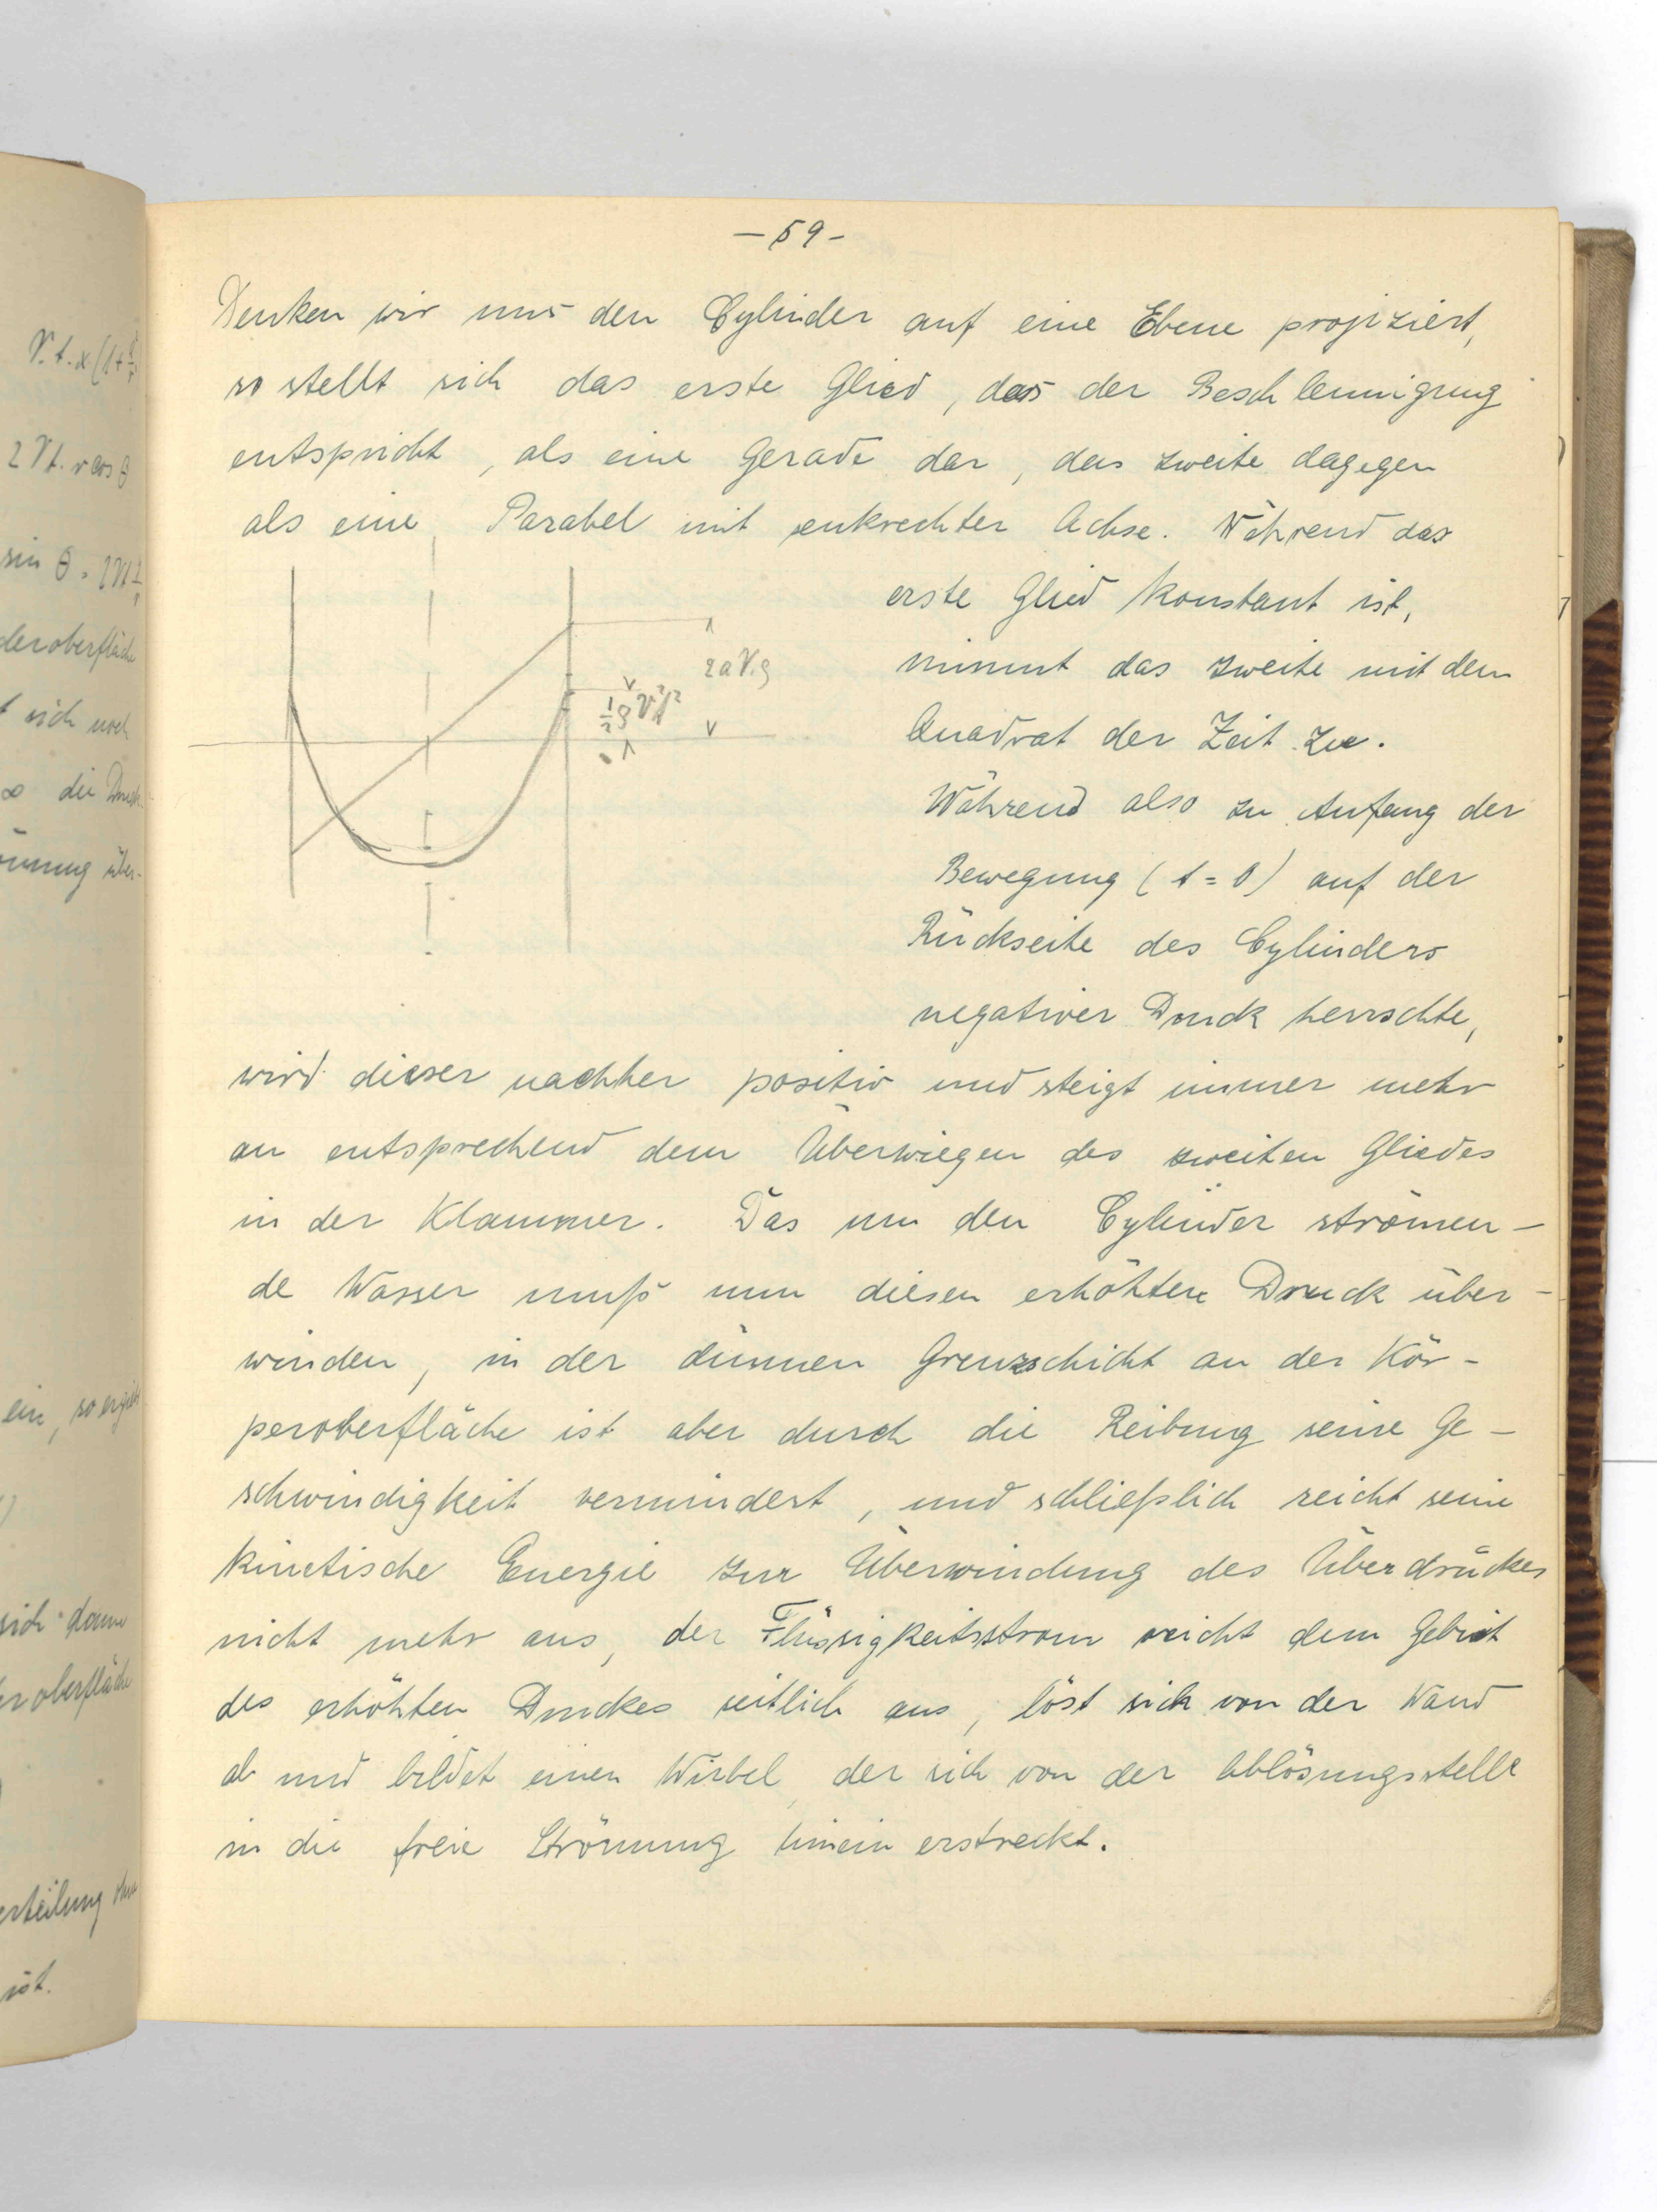 - 59 -
Denken wir uns den Cylinder auf eine Ebene projiziert,
so stellt sich das erste Glied, das der Beschleunigung
entspricht, als eine Gerade dar, das zweite dagegen
als eine Parabel mit senkrechter Achse. Während das
erste Glied konstant ist,
nimmt das zweite mit dem
Quadrat der Zeit zu.
Während also zu Anfang der
Bewegung (t = 0) auf der
Rückseite des Cylinders
negativer Druck herrschte,
2aV.ρ
½ρV²t²
wird dieser nachher positiv und steigt immer mehr
an entsprechend dem Überwiegen des zweiten Gliedes
in der Klammer. Das um den Cylinder strömen-
de Wasser muß nun diesen erhöhten Druck über-
winden, in der dünnen Grenzschicht an der Kör-
peroberfläche ist aber durch die Reibung seine Ge-
schwindigkeit vermindert, und schließlich reicht seine
kinetische Energie zur Überwindung des Überdruckes
nicht mehr aus, der Flüssigkeitsstrom weicht dem Gebiet
des erhöhten Druckes seitlich aus, löst sich von der Wand
ab und bildet einen Wirbel, der sich von der Ablösungsstelle
in die freie Strömung hinein erstreckt.
V.t.x(1+
2Vt.r cos θ
sin θ
deroberfläche
sich noch
∞ die Druck
ömung über-
ein, so ergibt
sich dann
oberfläche
erteilung
ist.